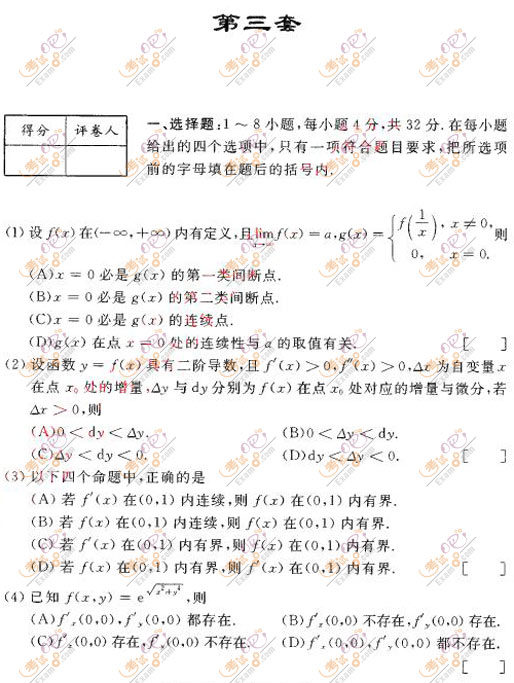 第三套
得分 评卷人
一、选择题:1～8小题,每小题4分,共32分.在每小题
给出的四个选项中,只有一项符合题目要求,把所选项
前的字母填在题后的括号内.
(1)设f(x)在(-∞,+∞)内有定义,且lim_{x→∞}f(x)=a,g(x)={f(1/x), x≠0, 0, x=0. 则
(A)x=0必是g(x)的第一类间断点.
(B)x=0必是g(x)的第二类间断点.
(C)x=0必是g(x)的连续点.
(D)g(x)在点x=0处的连续性与a的取值有关. [ ]
(2)设函数y=f(x)具有二阶导数,且f′(x)>0,f″(x)>0,Δx为自变量x
在点x₀处的增量,Δy与dy分别为f(x)在点x₀处对应的增量与微分,若
Δx>0,则
(A)0<dy<Δy. (B)0<Δy<dy.
(C)Δy<dy<0. (D)dy<Δy<0. [ ]
(3)以下四个命题中,正确的是
(A)若f′(x)在(0,1)内连续,则f(x)在(0,1)内有界.
(B)若f(x)在(0,1)内连续,则f(x)在(0,1)内有界.
(C)若f′(x)在(0,1)内有界,则f(x)在(0,1)内有界.
(D)若f(x)在(0,1)内有界,则f′(x)在(0,1)内有界. [ ]
(4)已知f(x,y)=e^{√(x²+y⁴)},则
(A)f′ₓ(0,0),f′ᵧ(0,0)都存在. (B)f′ₓ(0,0)不存在,f′ᵧ(0,0)存在.
(C)f′ₓ(0,0)存在,f′ᵧ(0,0)不存在. (D)f′ₓ(0,0),f′ᵧ(0,0)都不存在.
[ ]